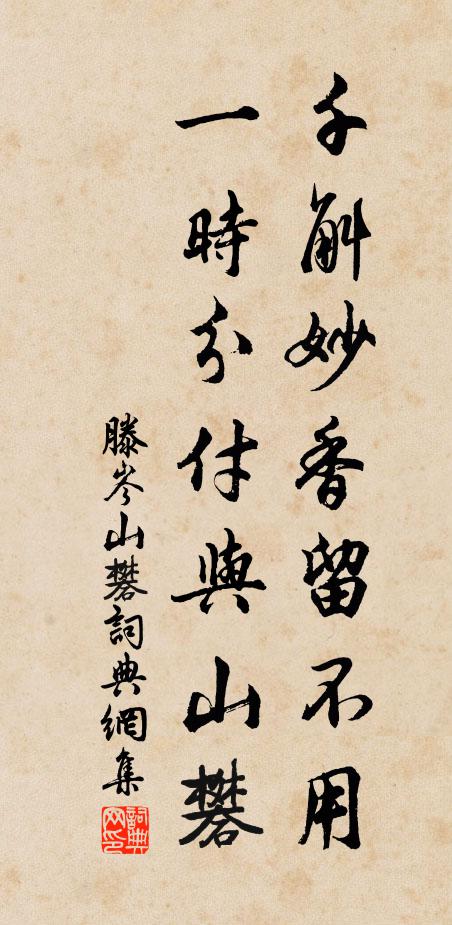 千斛妙香留不用
一時分付與山礬
滕岑山礬詞典網集
詞典网印